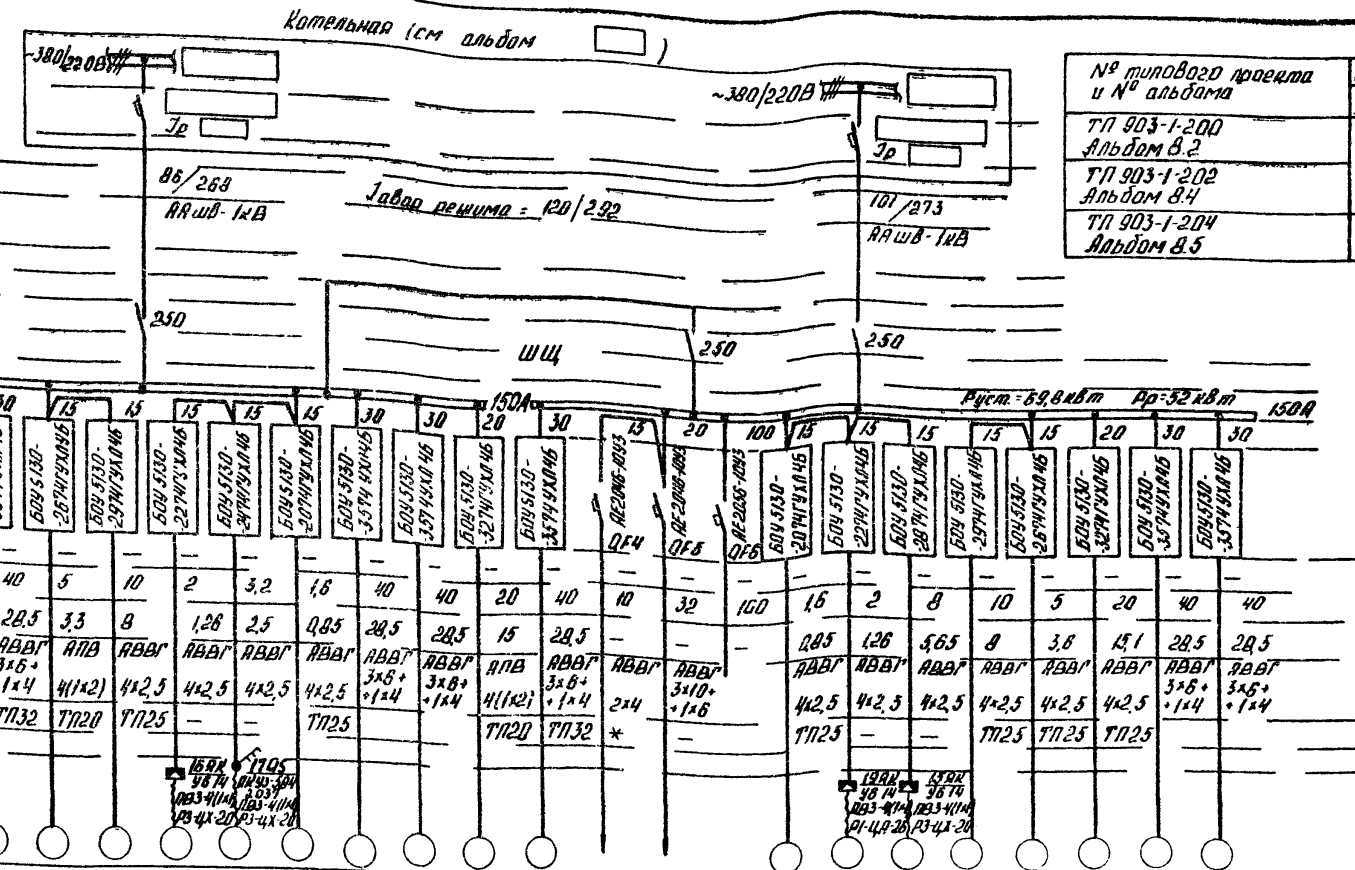 Котельная (см альбом )
~380/220В
Iр
86/268
ААшв-1кВ
Iавар режима = 120/292
~380/220В
Iр
101/273
ААшв-1кВ
№ типового проекта
и № альбома
ТП 903-1-200
Альбом 8.2
ТП 903-1-202
Альбом 8.4
ТП 903-1-204
Альбом 8.5
250
ШЩ
250
250
150А
Руст.=69,8 кВт Рр=52 кВт
150А
30 15 15 15 15 15 30 30 20 30 15 20 100 15 15 15 15 15 20 30 30
БОУ 5130-
-2674ГУХЛ4Б
БОУ 5130-
-2974ГУХЛ4Б
БОУ 5130-
-2274ГУХЛ4Б
БОУ 5130-
-2474ГУХЛ4Б
БОУ 5130-
-2074ГУХЛ4Б
БОУ 5130-
-3574 УХЛ4Б
БОУ 5130-
-3574 УХЛ4Б
БОУ 5130-
-3274ГУХЛ4Б
БОУ 5130-
-3574 УХЛ4Б
АЕ2046-10У3
QF4
АЕ2046-10У3
QF5
АЕ2056-10У3
QF6
БОУ 5130-
-2074ГУХЛ4Б
БОУ 5130-
-2274ГУХЛ4Б
БОУ 5130-
-2874ГУХЛ4Б
БОУ 5130-
-2974ГУХЛ4Б
БОУ 5130-
-2674ГУХЛ4Б
БОУ 5130-
-3274ГУХЛ4Б
БОУ 5130-
-3574 УХЛ4Б
БОУ 5130-
-3574 УХЛ4Б
40 5 10 2 3,2 1,6 40 40 20 40 10 32 100 1,6 2 8 10 5 20 40 40
28,5 3,3 8 1,26 2,5 0,85 28,5 28,5 15 28,5 – – 0,85 1,26 5,65 8 3,6 15,1 28,5 28,5
АВВГ АПВ АВВГ АВВГ АВВГ АВВГ АВВГ АВВГ АПВ АВВГ АВВГ АВВГ АВВГ АВВГ АВВГ АВВГ АВВГ АВВГ АВВГ АВВГ
3х6+ 3х6+ 3х6+ 3х6+ 3х10+ 3х6+ 3х6+
1х4 4(1х2) 4х2,5 4х2,5 4х2,5 4х2,5 +1х4 +1х4 4(1х2) +1х4 2х4 +1х6 4х2,5 4х2,5 4х2,5 4х2,5 4х2,5 4х2,5 +1х4 +1х4
ТП32 ТП20 ТП25 – – ТП25 ТП20 ТП32 * – ТП25 – – ТП25 ТП25 ТП25
16ЯК
У614
ПВ3-4(1х1)
Р3-ЦХ-20
17QS
ПВ3-4(1х1)
Р3-ЦХ-20
19ЯК
У614
ПВ3-4(1х1)
У614
ПВ3-4(1х1)
Р3-ЦХ-20